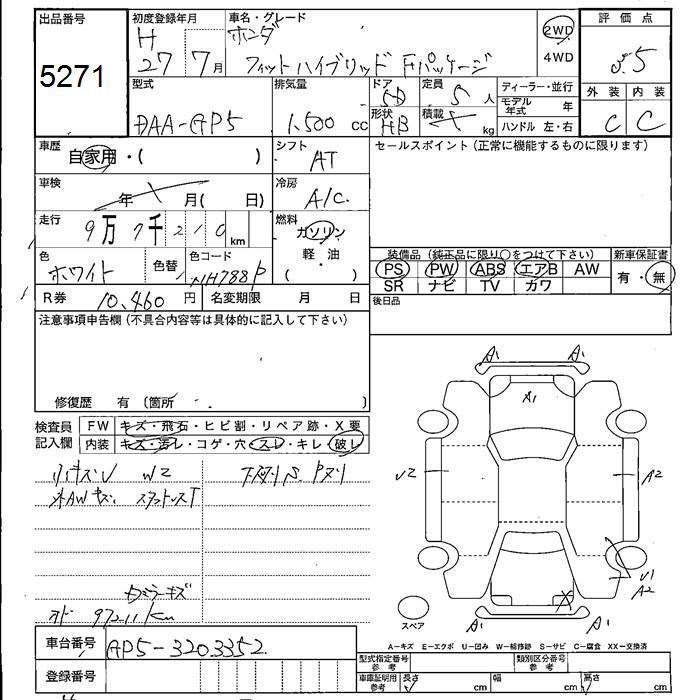 出品番号 初度登録年月 車名・グレード 評価点
5271 H 27 7月 ホンダ 2WD 3.5
フィットハイブリッド Fパッケージ 4WD
型式 排気量 ドア 5D 定員 5人 ディーラー・並行 外装 内装
DAA-GP5 1,500 cc 形状 HB 積載 kg モデル年式 年 C C
ハンドル 左・右
車歴 自家用・( ) シフト AT セールスポイント (正常に機能するものに限ります)
車検 年 月( 日) 冷房 A/C
走行 9万7千210km 燃料 ガソリン
軽・油
( )
色 ホワイト 色替 色コード NH788P 装備品 (純正品に限り○をつけて下さい) 新車保証書
PS PW ABS エアB AW 有・無
SR ナビ TV カワ
R券 10,460円 名変期限 月 日 後日品
注意事項申告欄 (不具合内容等は具体的に記入して下さい)
修復歴 有 (箇所 )
検査員 FW キズ・飛石・ヒビ割・リペア跡・X要
記入欄 内装 キズ・汚レ・コゲ・穴・スレ・キレ・破レ
W2
外AWキズ
キズ
97211km
A1 A1
A1
U2 A2
U1
A2
A1 A1
スペア
A-キズ E-エクボ U-凹み W-補修跡 S-サビ C-腐食 XX-交換済
車台番号 GP5-3203352 型式指定番号 参考 類別区分番号 参考
登録番号 車庫証明用 参考 長さ cm 幅 cm 高さ cm